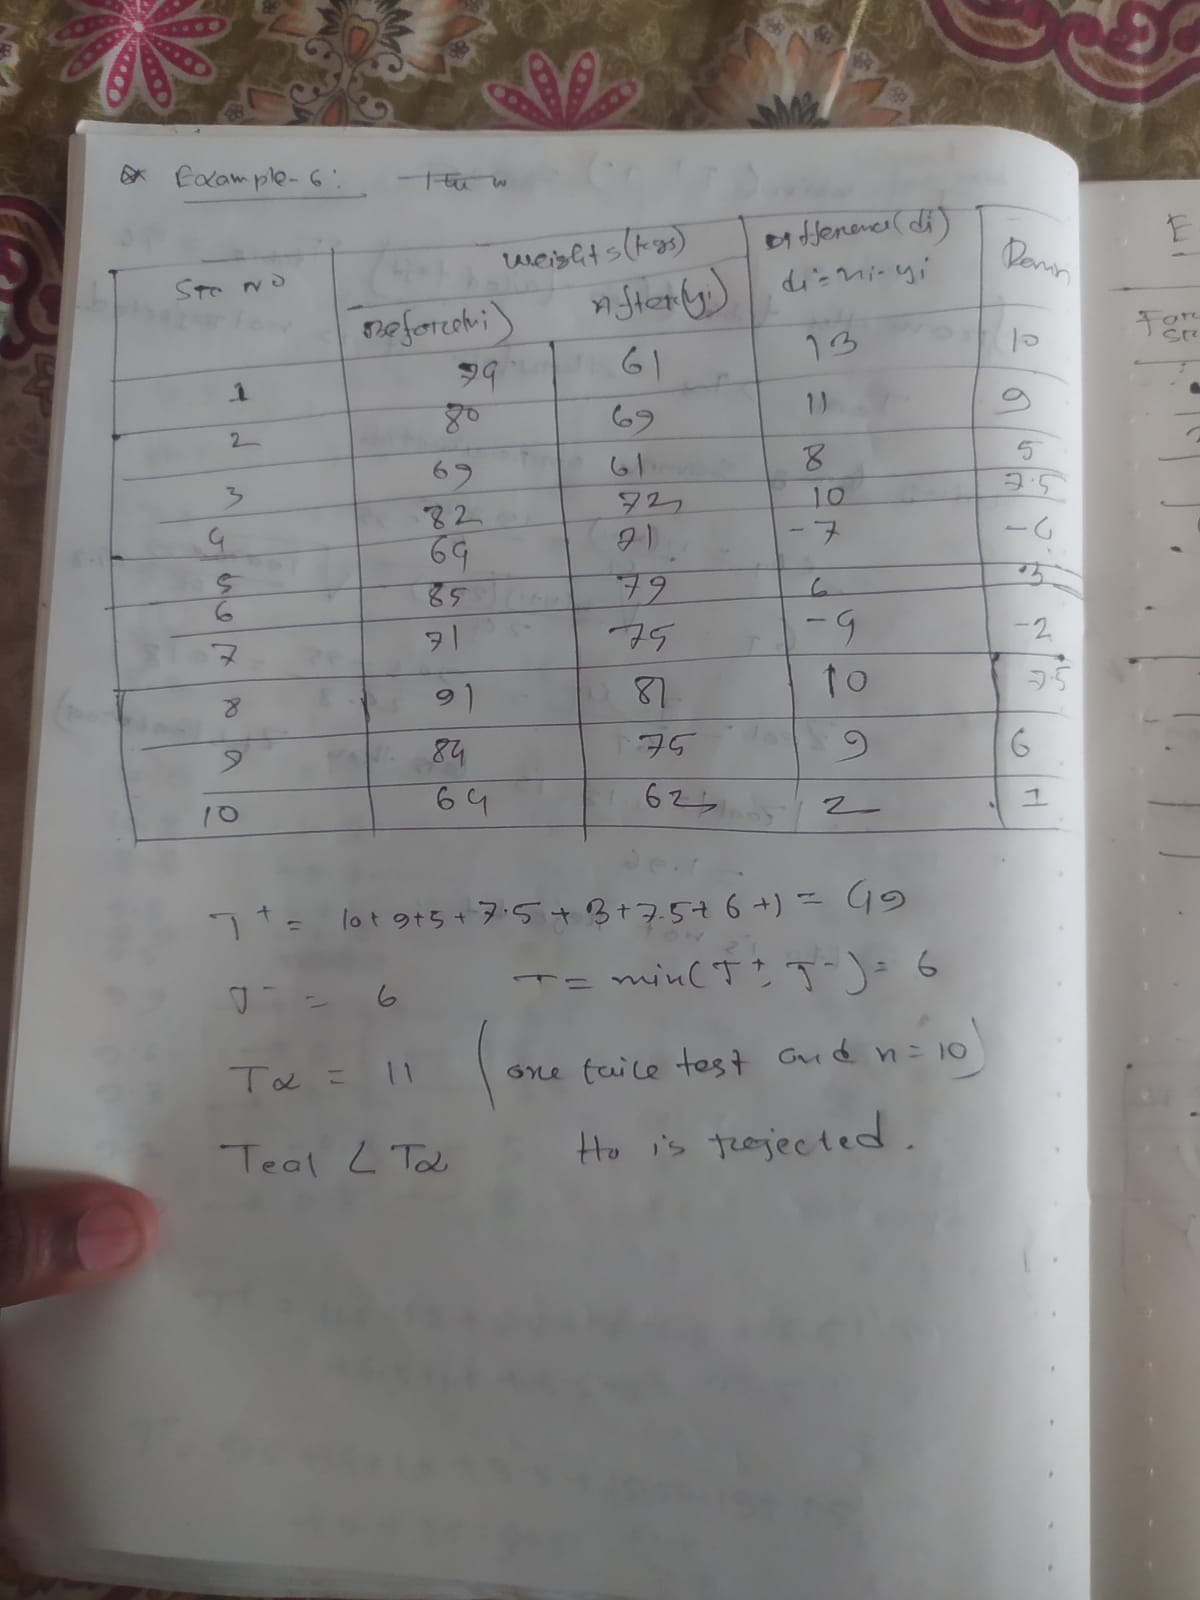 Example-6:
Str NO
Weights (kgs)
Difference (di)
di = xi - yi
Rank
Before(xi)
After(yi)
1 74 61 13 10
2 80 69 11 9
3 69 61 8 5
4 82 72 10 7.5
5 64 71 -7 -4
6 85 79 6 3
7 71 75 -4 -2
8 91 81 10 7.5
9 84 75 9 6
10 64 62 2 1
T+ = 10+9+5+7.5+3+7.5+6+1 = 49
T- = 6 T = min(T+, T-) = 6
Tα = 11 (one taile test and n = 10)
Tcal < Tα Ho is rejected.
E
For